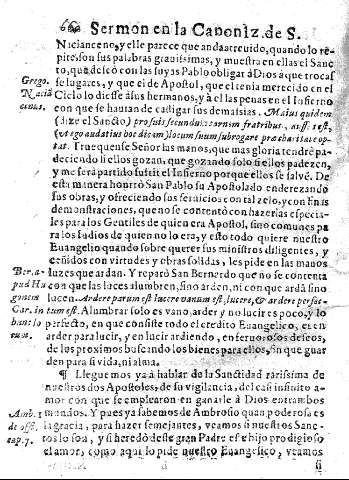 Sermon en la Canoniz. de S.
Niciançeno, y elle parece que anda atreuido, quando lo re-
pite son sus palabras grauissimas, y muestra en ellas el Sanc-
to, que deseó con las suyas Pablo obligar à Dios à que trocas
Grego. se lugares, y que el de Apostol, que el tenia merecido en el
Naciã Cielo lo diesse à sus hermanos, y à el las penas en el Infierno
cenus. con que se hauran de castigar sus demasias. Maius quidem
(dize el Sancto) pro suis secundum carnem fratribus, ausus est,
(vt ego audatius hoc dicam) locum suum subrogare præ charitate op-
tat. Truequense Señor las manos, que mas gloria tendrè pa-
deciendo si ellos gozan, que gozando solo si ellos padezen,
y me serà partido sufrir el Infierno porque ellos se salvè. De
esta manera honrrò San Pablo su Apostolado enderezando
sus obras, y ofreciendo sus seruicios con tal zelo, y con finas
demonstraciones, que no se contentò con hazerlas especia-
les para los Gentiles de quien era Apostol, sino comunes pa
ra los Iudios de quien no lo era, y esto todo quiere nuestro
Euangelio quando sobre querer sus ministros diligentes, y
ceñidos con virtudes y obras solidas, les pide en las manos
Ber. a- luzes que ardan. Y reparò San Bernardo que no se contenta
pud Hu con que las luces alumbren, sino arden, ni con que ardã sino
gonem lucen. Ardere parum est lucere vanum est, lucere, & ardere perfec-
Car. in tum est. Alumbrar solo es vano, arder y no lucir es poco, y lo
hunc lo perfecto, en que consiste todo el credito Euangelico, es en
cum. arder para lucir, y en lucir ardiendo, en feruorosos deseos,
de los proximos buscando los bienes para ellos, sin que guar
den para si vida, ni alma.
¶ Lleguemos ya à hablar de la Sanctidad rarissima de
nuestros dos Apostoles, de su vigilancia, del casi infinito a-
mor con que se emplearon en ganarle à Dios entrambos
Amb. 1 mundos. Y pues ya sabemos de Ambrosio quan poderosa es
de off. la gracia, para hazer semejantes, veamos si nuestros Sanc-
cap. 7. tos lo son, y si heredò deste gran Padre este hijo prodigioso
el amor, como aqui lo pide nuestro Euangelico, veamos
si